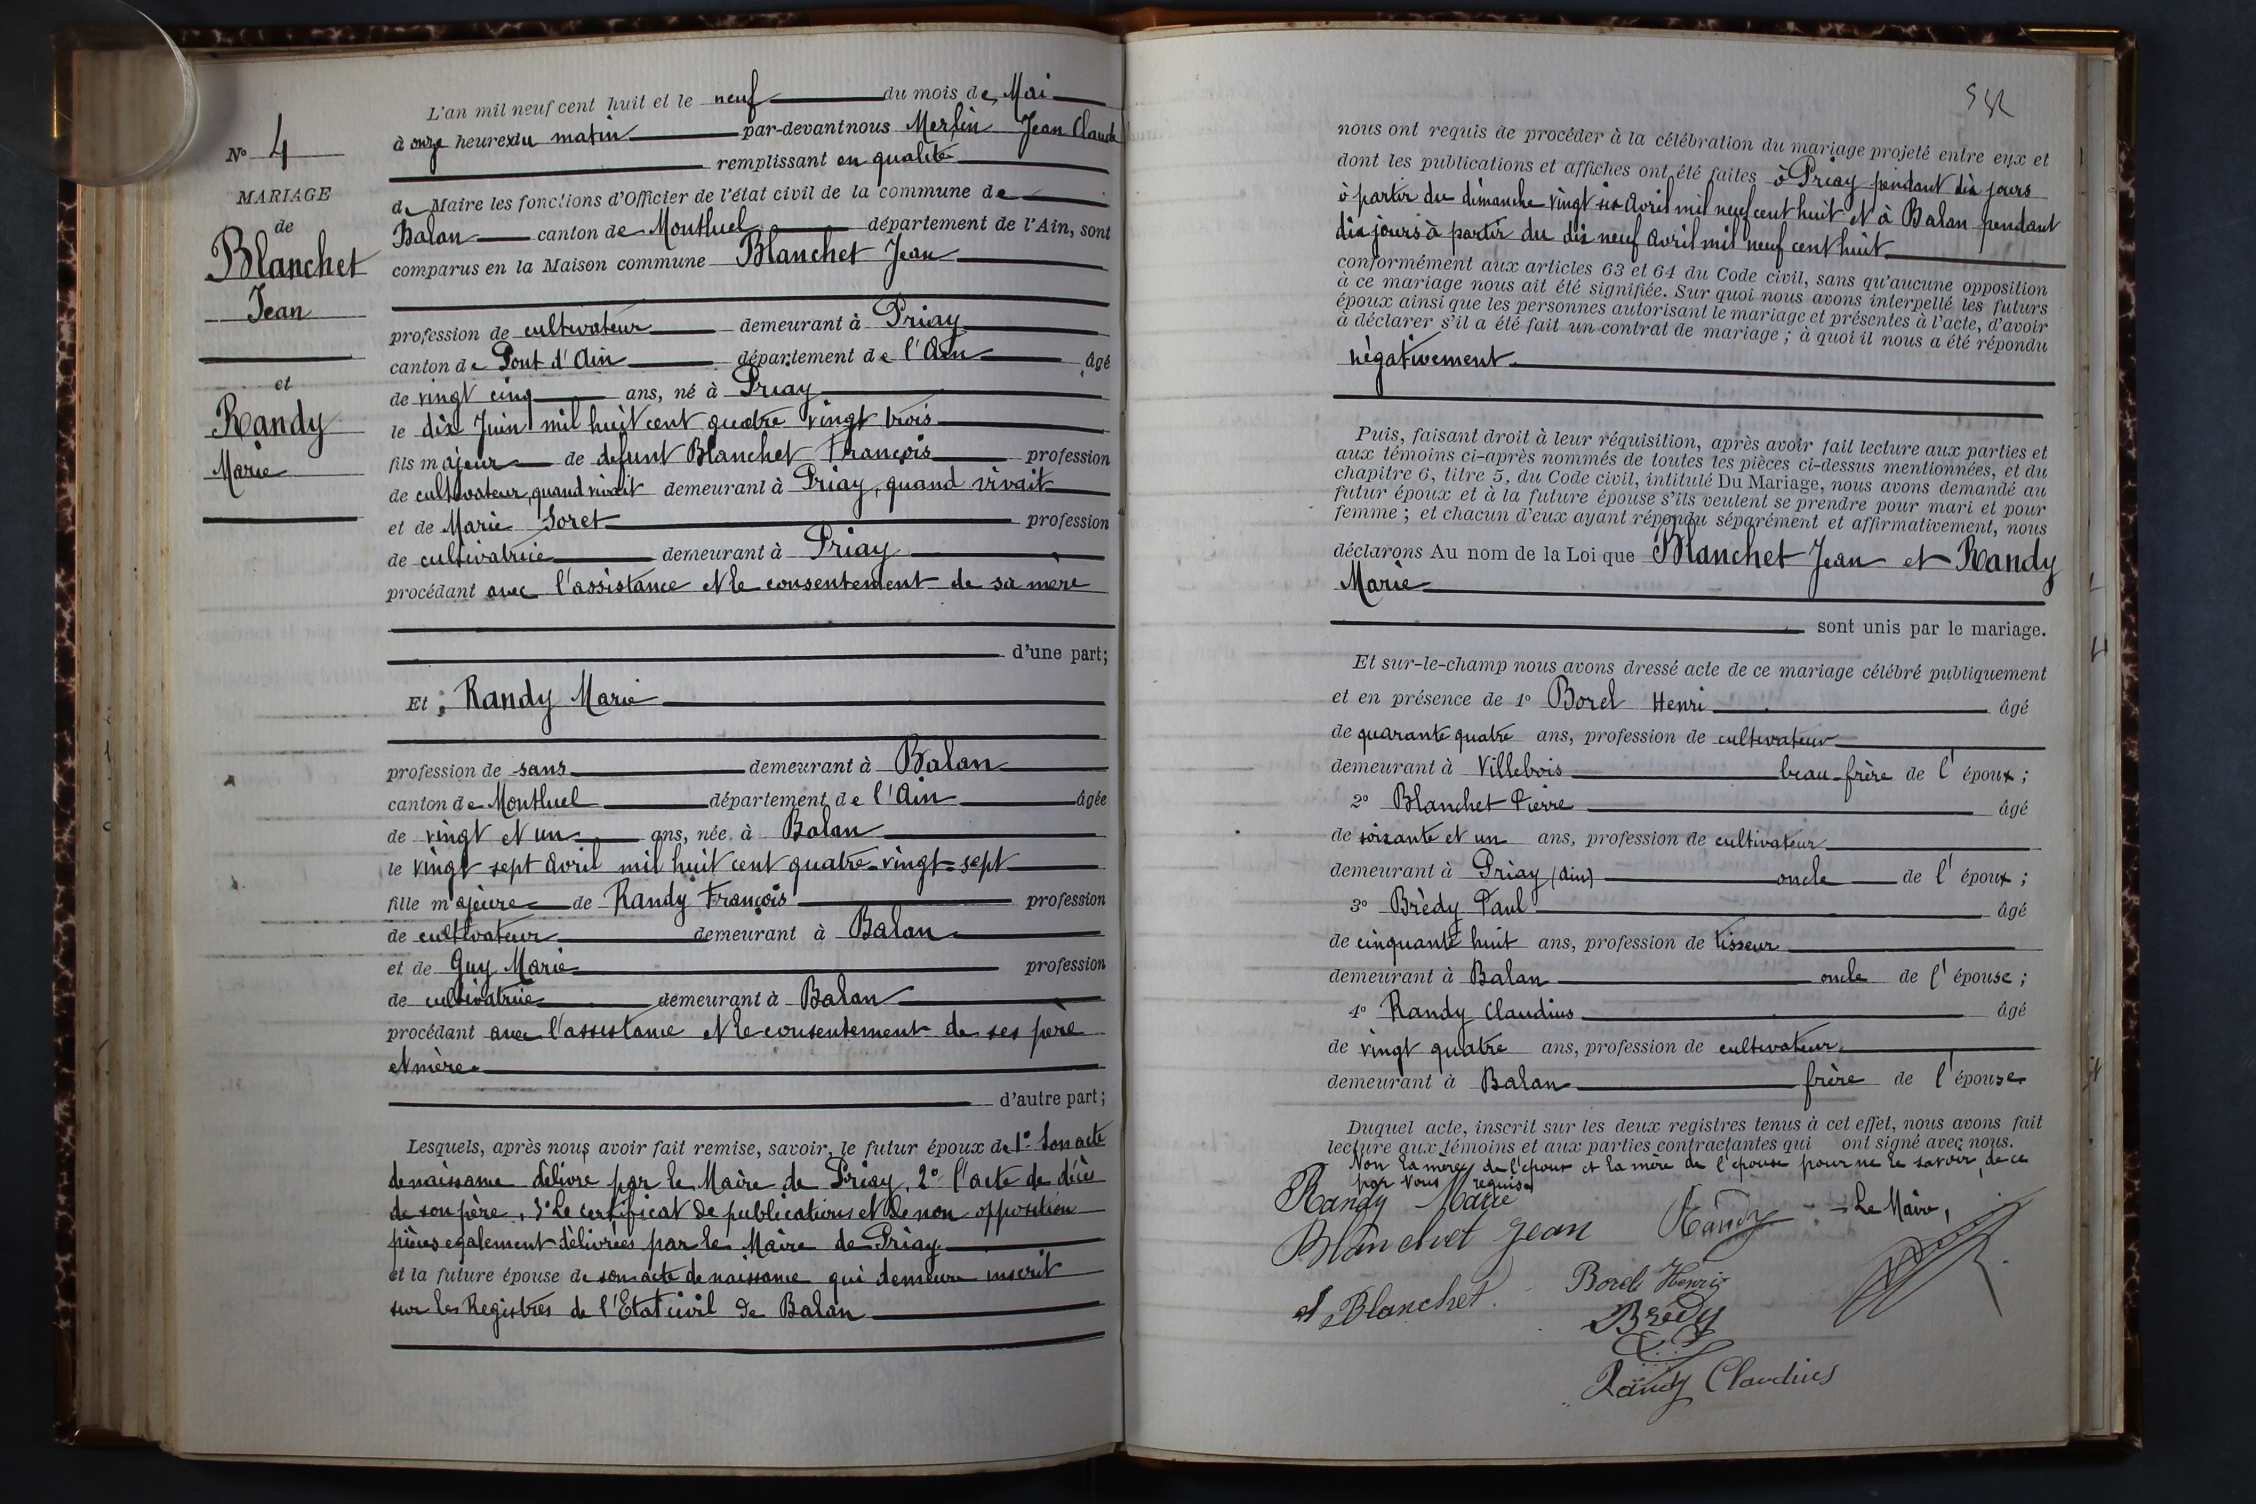 N° 4
MARIAGE
de
Blanchet
Jean
et
Randy
Marie
L'an mil neuf cent huit et le neuf du mois de Mai
à onze heures du matin par-devant nous Merlin Jean Claude
remplissant en qualité
de Maire les fonctions d'Officier de l'état civil de la commune de
Balan canton de Montluel département de l'Ain, sont
comparus en la Maison commune Blanchet Jean
profession de cultivateur demeurant à Priay
canton de Pont d'Ain département de l'Ain âgé
de vingt cinq ans, né à Priay
le dix Juin mil huit cent quatre vingt trois
fils majeur de défunt Blanchet François profession
de cultivateur, quand vivait demeurant à Priay, quand vivait
et de Marie Soret profession
de cultivatrice demeurant à Priay
procédant avec l'assistance et le consentement de sa mère
d'une part;
Et ; Randy Marie
profession de sans demeurant à Balan
canton de Montluel département de l'Ain âgée
de vingt et un ans, née à Balan
le vingt sept avril mil huit cent quatre-vingt-sept
fille majeure de Randy François profession
de cultivateur demeurant à Balan
et de Guy Marie profession
de cultivatrice demeurant à Balan
procédant avec l'assistance et le consentement de ses père
et mère
d'autre part;
Lesquels, après nous avoir fait remise, savoir, le futur époux de 1° Son acte
de naissance délivré par le Maire de Priay, 2° l'acte de décès
de son père, 3° Le certificat de publications et de non opposition
pièces également délivrées par le Maire de Priay
et la future épouse de son acte de naissance qui demeure inscrit
sur les Registres de l'Etat civil de Balan
nous ont requis de procéder à la célébration du mariage projeté entre eux et
dont les publications et affiches ont été faites à Priay pendant dix jours
à partir du dimanche vingt six Avril mil neuf cent huit et à Balan pendant
dix jours à partir du dix neuf avril mil neuf cent huit
conformément aux articles 63 et 64 du Code civil, sans qu'aucune opposition
à ce mariage nous ait été signifiée. Sur quoi nous avons interpellé les futurs
époux ainsi que les personnes autorisant le mariage et présentes à l'acte, d'avoir
à déclarer s'il a été fait un contrat de mariage ; à quoi il nous a été répondu
négativement
Puis, faisant droit à leur réquisition, après avoir fait lecture aux parties et
aux témoins ci-après nommés de toutes les pièces ci-dessus mentionnées, et du
chapitre 6, titre 5, du Code civil, intitulé Du Mariage, nous avons demandé au
futur époux et à la future épouse s'ils veulent se prendre pour mari et pour
femme ; et chacun d'eux ayant répondu séparément et affirmativement, nous
déclarons Au nom de la Loi que Blanchet Jean et Randy
Marie
sont unis par le mariage.
Et sur-le-champ nous avons dressé acte de ce mariage célébré publiquement
et en présence de 1° Borel Henri âgé
de quarante quatre ans, profession de cultivateur
demeurant à Villebois beau-frère de l'époux ;
2° Blanchet Pierre âgé
de soixante et un ans, profession de cultivateur
demeurant à Priay (Ain) oncle de l'époux ;
3° Brèdy Paul âgé
de cinquante huit ans, profession de tisseur
demeurant à Balan oncle de l'épouse ;
4° Randy Claudius âgé
de vingt quatre ans, profession de cultivateur
demeurant à Balan frère de l'épouse
Duquel acte, inscrit sur les deux registres tenus à cet effet, nous avons fait
lecture aux témoins et aux parties contractantes qui ont signé avec nous.
Non la mère de l'époux et la mère de l'épouse pour ne le savoir, de ce
par nous requises
Randy Marie
Randy
Le Maire,
Blanchet Jean
Borel Henri
Blanchet
Brédy
Randy Claudius